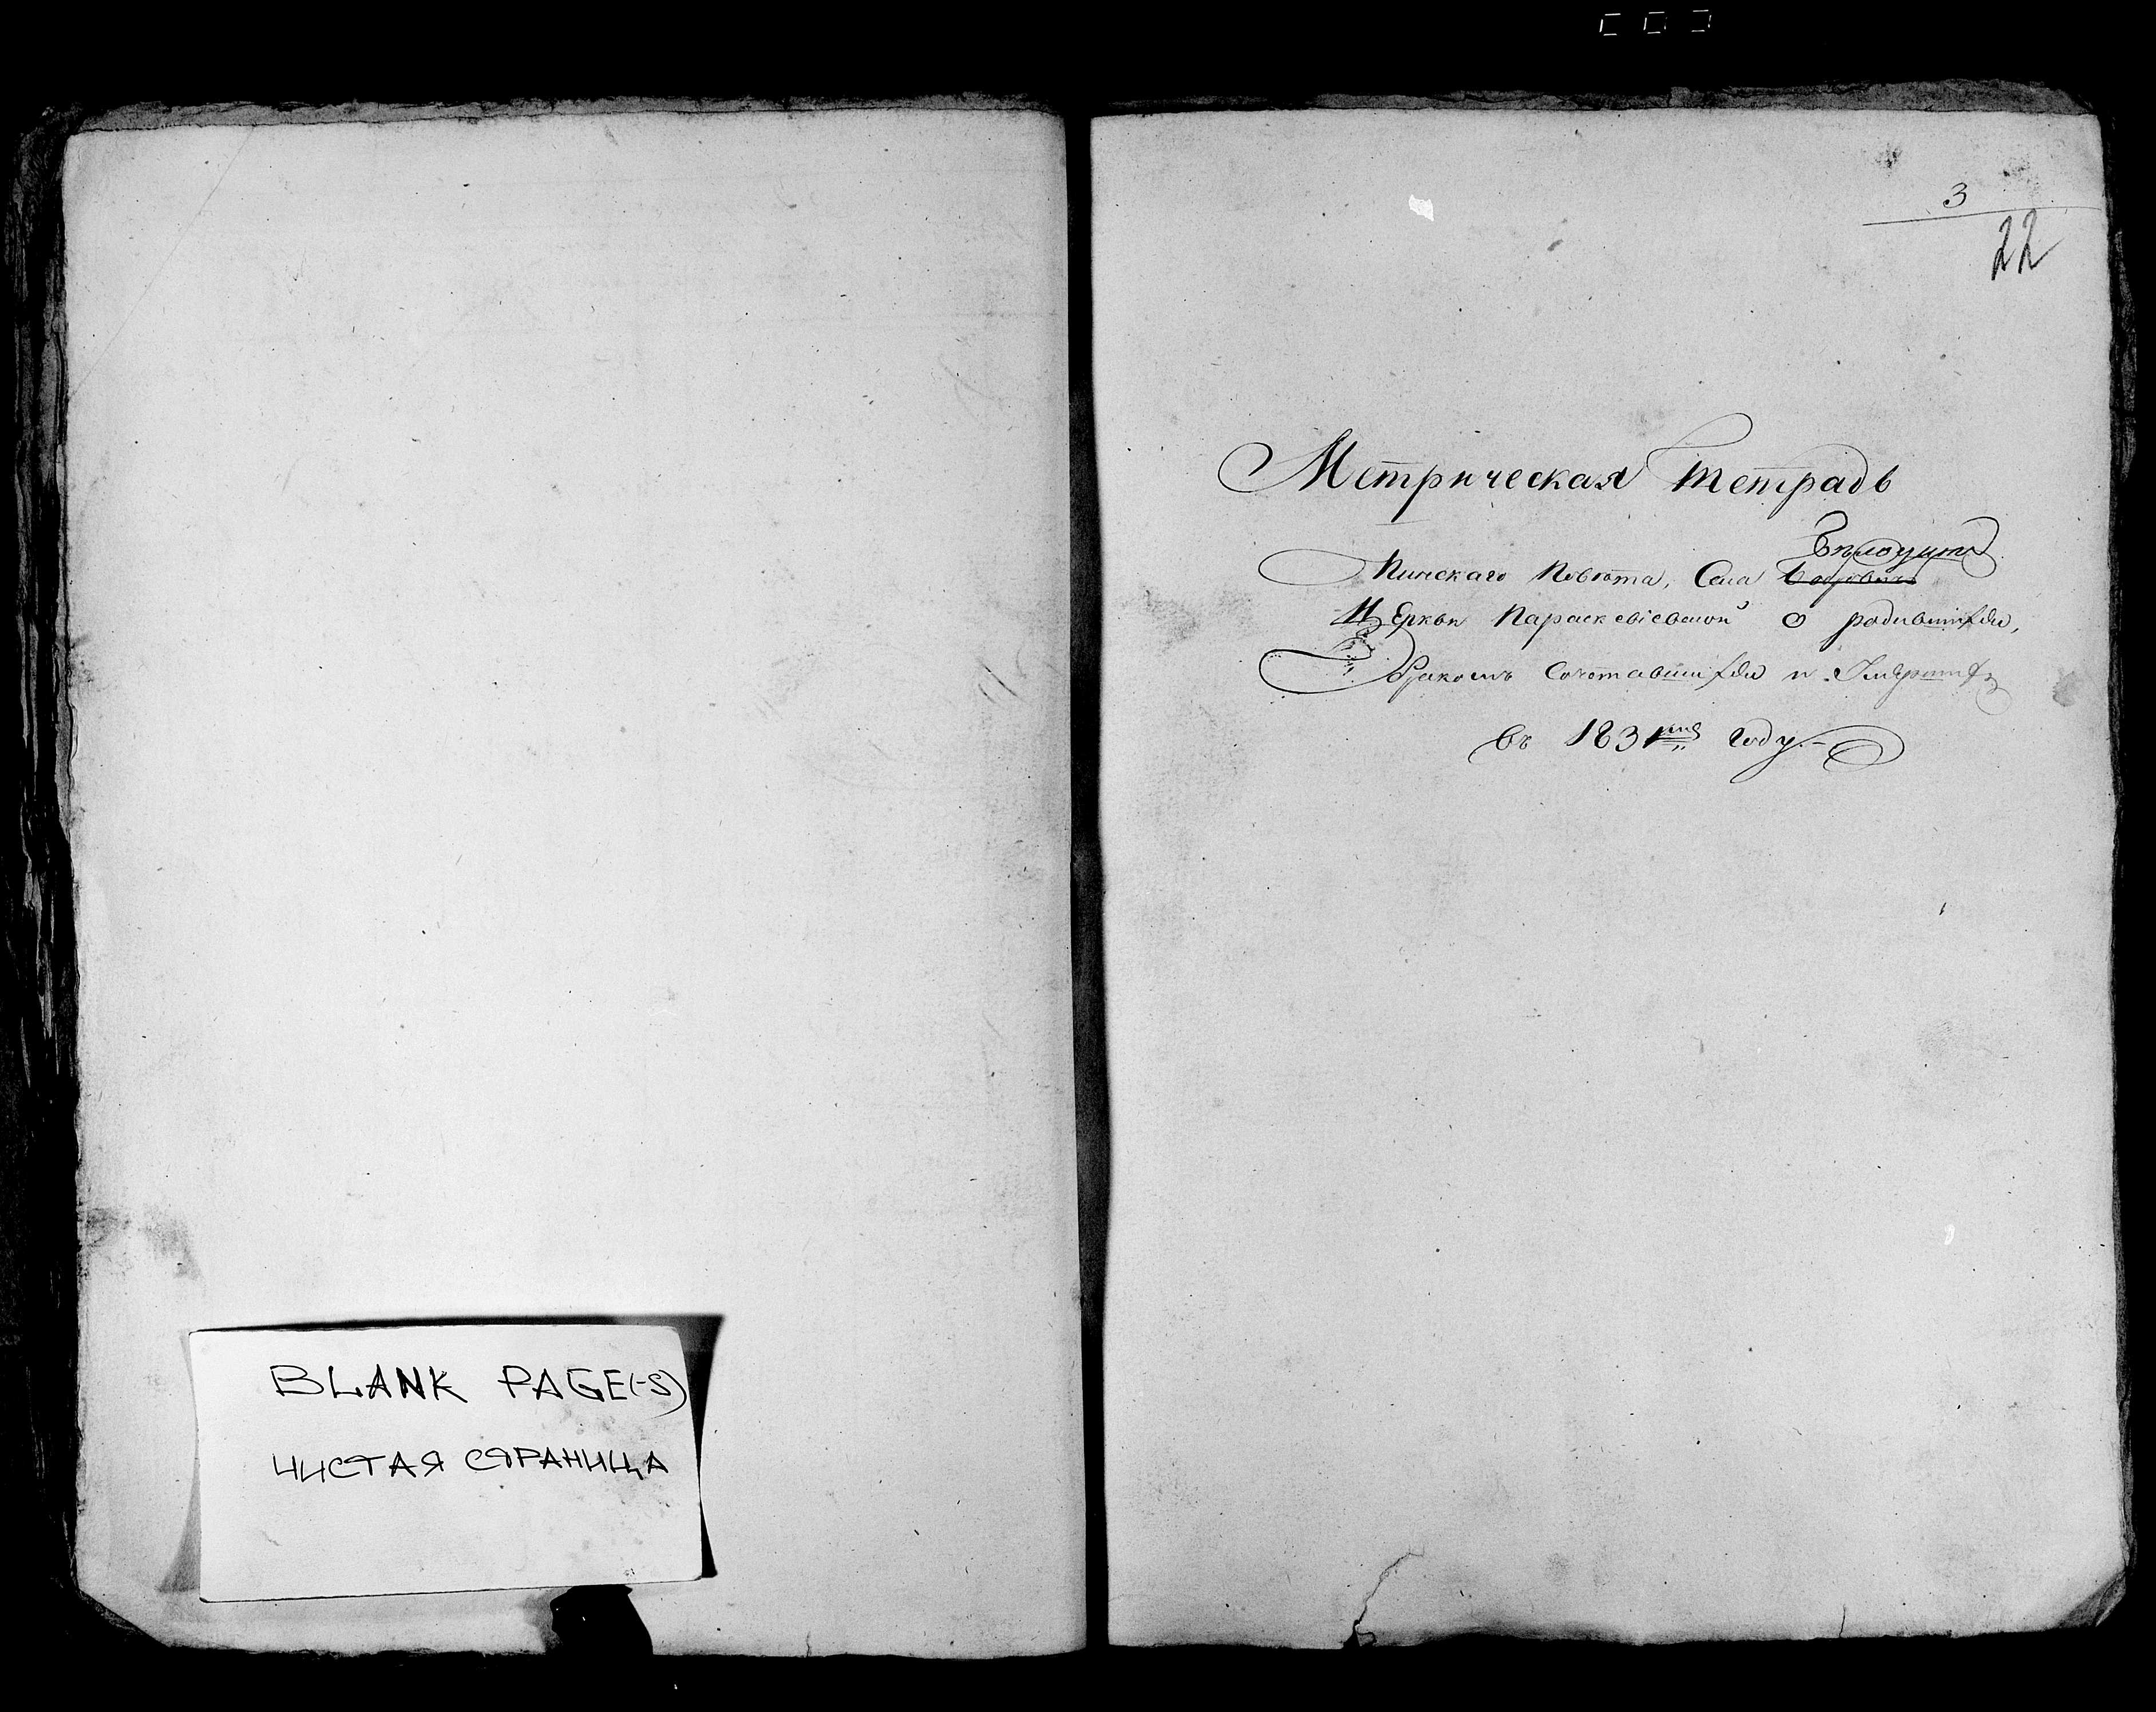 BLANK PAGE(-S)
ЧИСТАЯ СТРАНИЦА
3
22
Метрическая тетрадь
Пинскаго Повѣта, Села
Церкви Параскевіевской о родившихся,
Бракомъ Сочетавшихся и Умершихъ
въ 1831мъ Году.-